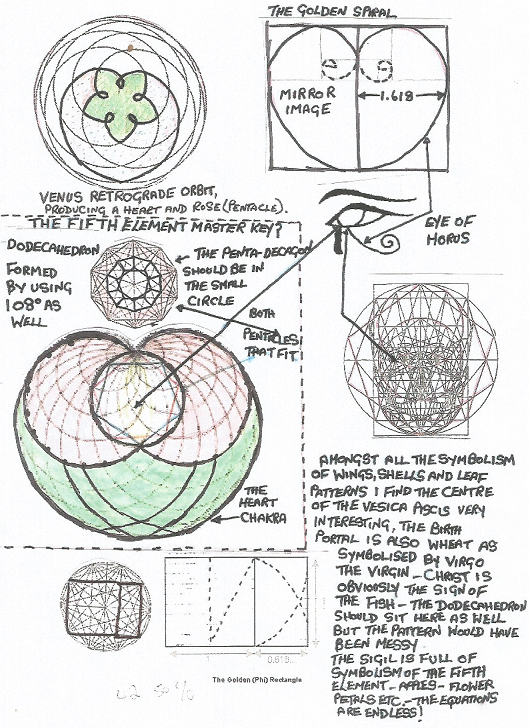 THE GOLDEN SPIRAL
MIRROR
IMAGE
1.618
VENUS RETROGRADE ORBIT,
PRODUCING A HEART AND ROSE (PENTACLE).
EYE OF
HORUS
THE FIFTH ELEMENT MASTER KEY?
DODECAHEDRON
FORMED
BY USING
108° AS
WELL
THE PENTA-DECAGON
SHOULD BE IN
THE SMALL
CIRCLE
BOTH
PENTACLES
THAT FIT
THE
HEART
CHAKRA
AMONGST ALL THE SYMBOLISM
OF WINGS, SHELLS AND LEAF
PATTERNS I FIND THE CENTRE
OF THE VESICA PISCIS VERY
INTERESTING, THE BIRTH
PORTAL IS ALSO WHEAT AS
SYMBOLISED BY VIRGO
THE VIRGIN - CHRIST IS
OBVIOUSLY THE SIGN OF
THE FISH - THE DODECAHEDRON
SHOULD SIT HERE AS WELL
BUT THE PATTERN WOULD HAVE
BEEN MESSY
THE SIGIL IS FULL OF
SYMBOLISM OF THE FIFTH
ELEMENT - APPLES - FLOWER
PETALS ETC. - THE EQUATIONS
ARE ENDLESS!
1
0.618...
The Golden (Phi) Rectangle